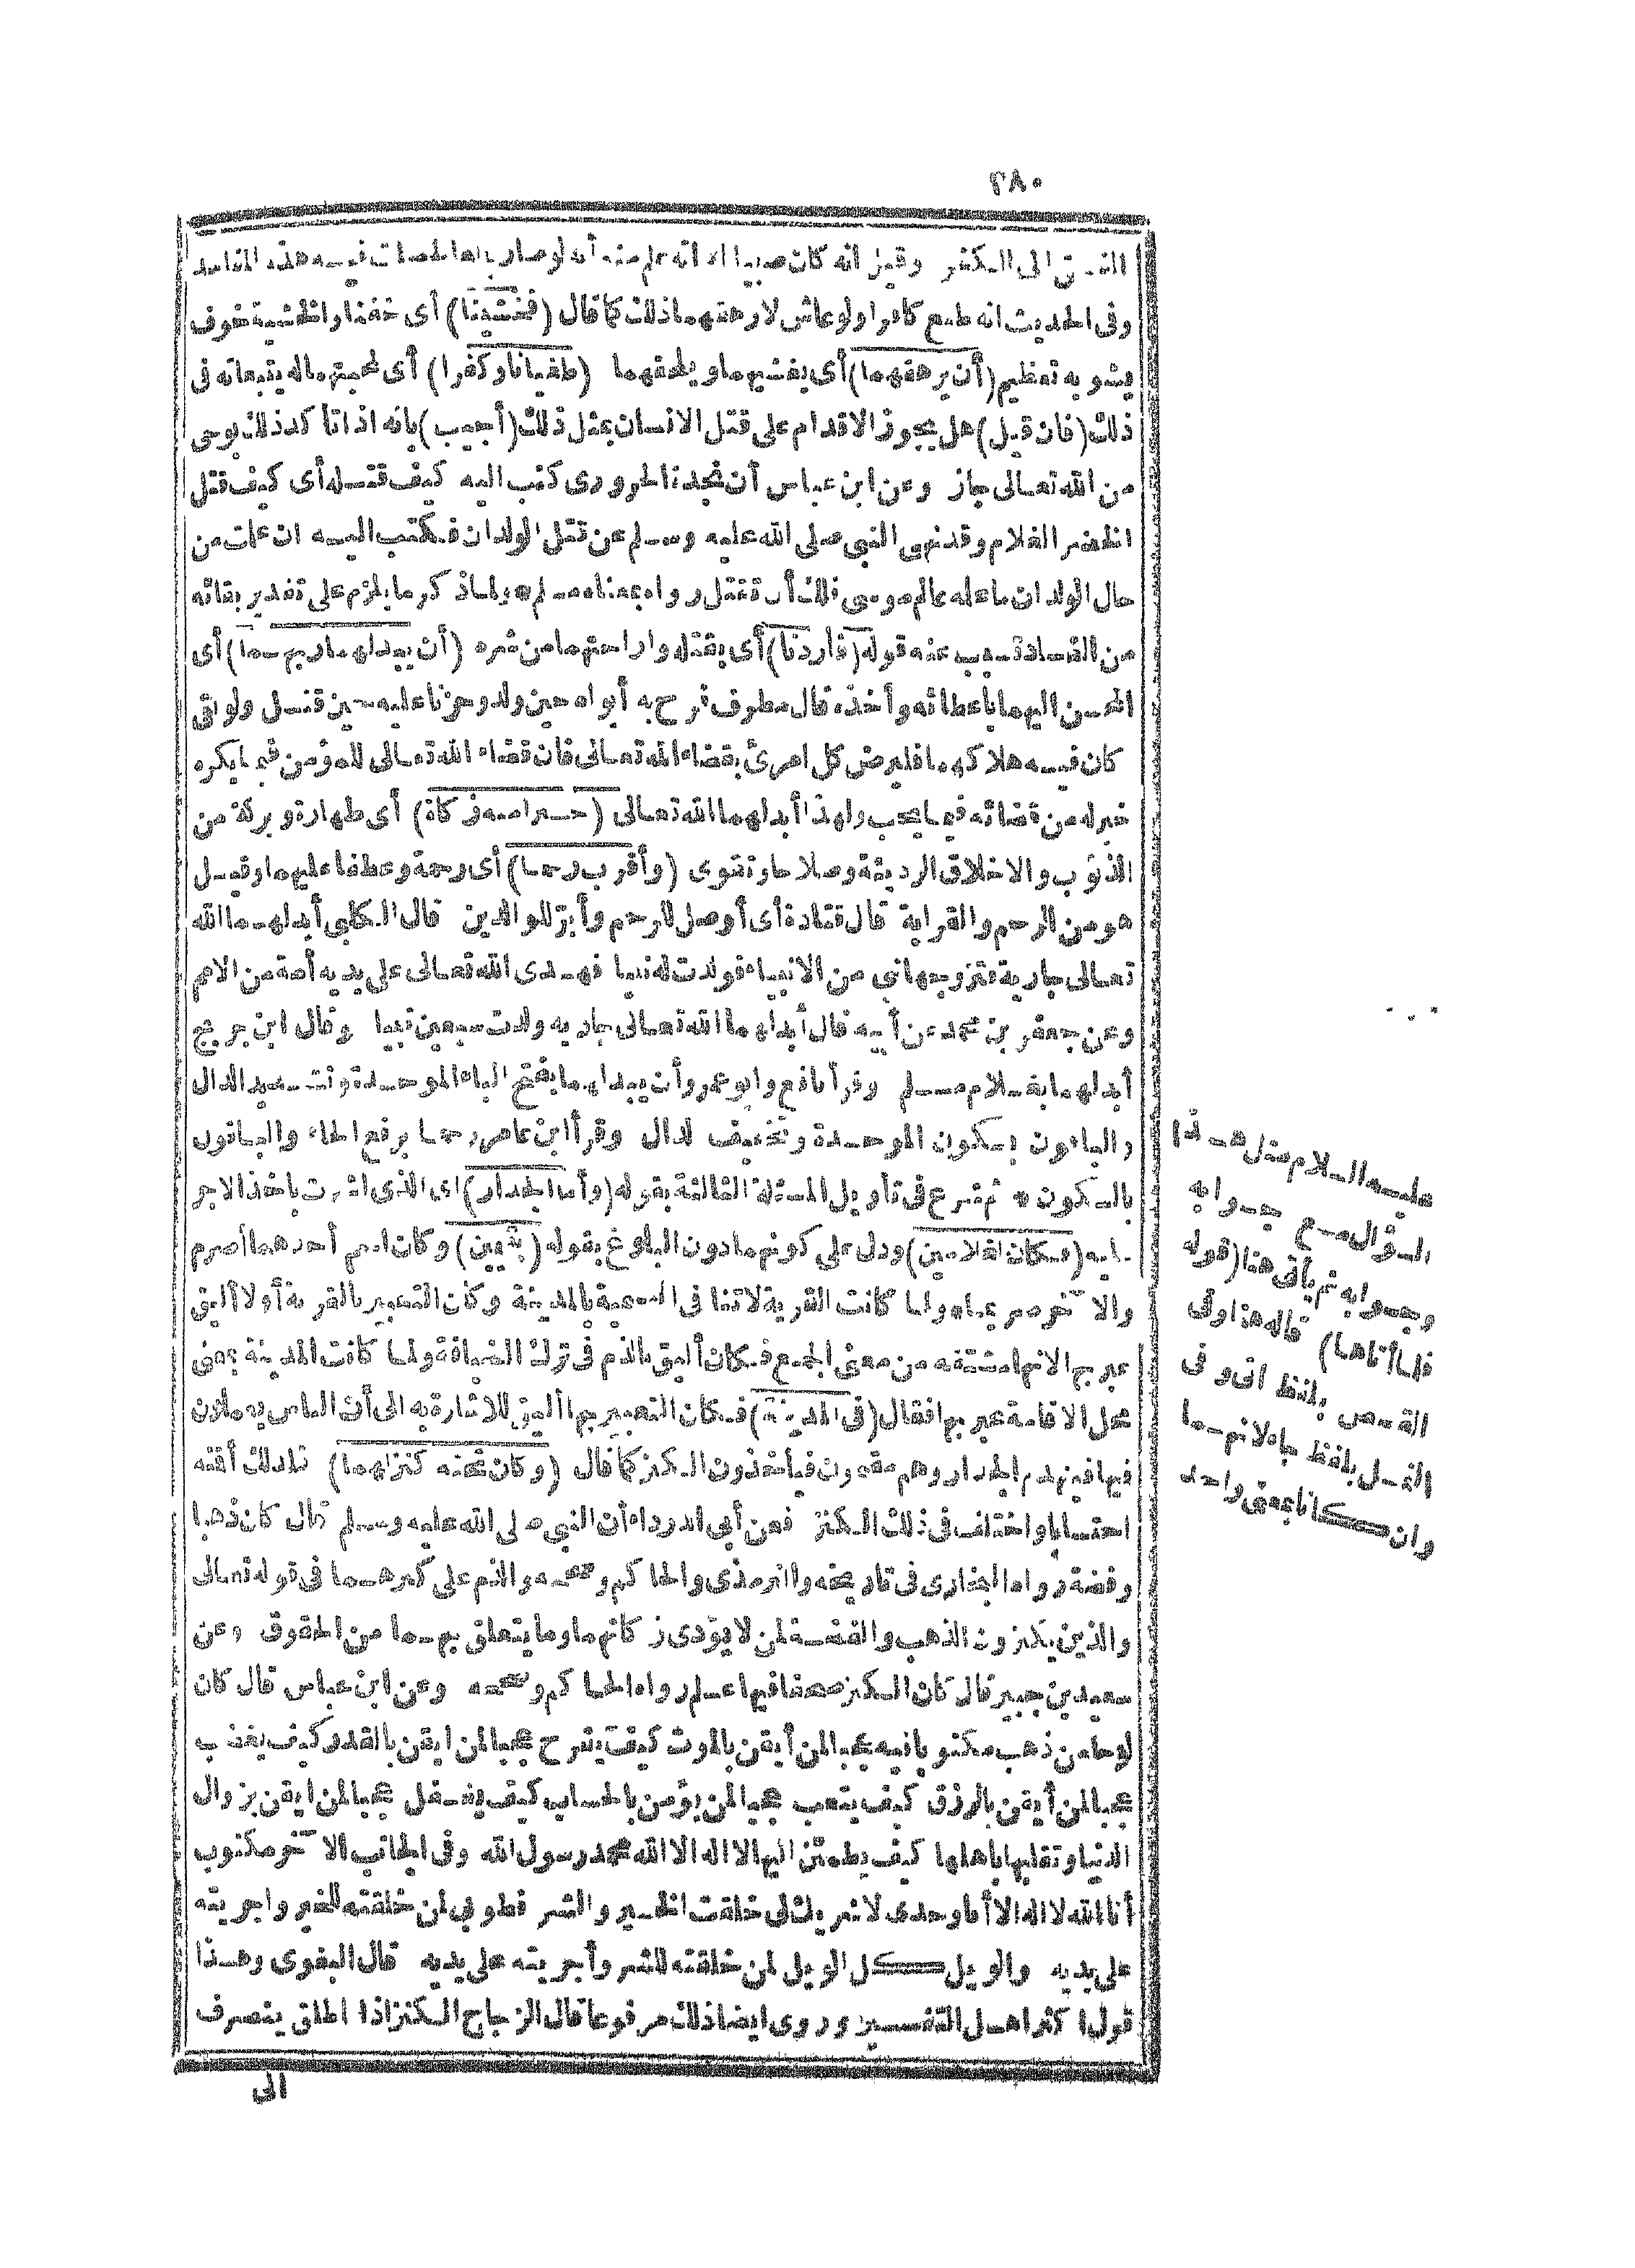 ٣٨٠
الفسق الى الكفر وقيل انه كان صبيا الا انه علم منه أنه لو صار بالغا لحصلت فيه هذه المفاسد
وفى الحديث انه طبع كافرا ولو عاش لارهقهما ذلك كما قال (فخشينا) أى خفنا والخشية خوف
يشوبه تعظيم (أن يرهقهما) أى يغشيهما ويلحقهما (طغيانا وكفرا) أى لمحبتهما له يتبعانه فى
ذلك (فان قيل) هل يجوز الاقدام على قتل الانسان بمثل ذلك (أجيب) بانه اذا تأكد ذلك بوحى
من الله تعالى جاز وعن ابن عباس أن نجدة الحرورى كتب اليه كيف قتله أى كيف قتل
الخضر الغلام وقد نهى النبى صلى الله عليه وسلم عن قتل الولدان فكتب اليه ان علمت من
حال الولدان ما علمه عالم موسى فلك أن تقتل رواه بمعناه مسلم * ولما ذكر ما يلزم على تقدير بقائه
من الفساد تسبب عنه قوله (فأردنا) أى بقتله واراحتهما من شره (أن يبدلهما ربهما) أى
المحسن اليهما باعطائه وأخذه قال مطرف فرح به أبواه حين ولد وحزنا عليه حين قتل ولو بقى
كان فيه هلاكهما فليرض كل امرئ بقضاء الله تعالى فان قضاء الله تعالى للمؤمن فيما يكره
خير له من قضائه فيما يحب ولهذا أبدلهما الله تعالى (خيرا منه زكاة) أى طهارة وبركة من
الذنوب والاخلاق الرديئة وصلاحا وتقوى (وأقرب رحما) أى رحمة وعطفا عليهما وقيل
هو من الرحم والقرابة قال قتادة أى أوصل للرحم وأبرّ للوالدين قال الكلبى أبدلهما الله
تعالى جارية فتزوجها نبى من الانبياء فولدت له نبيا فهدى الله تعالى على يديه أمة من الامم
وعن جعفر بن محمد عن أبيه قال أبدلهما الله تعالى جارية ولدت سبعين نبيا وقال ابن جريج
أبدلهما بغلام مسلم وقرأ نافع وأبو عمرو أن يبدلهما بفتح الباء الموحدة وتشديد الدال
والباقون بسكون الموحدة وتخفيف الدال وقرأ ابن عامر رحما برفع الحاء والباقون
بالسكون * ثم شرع فى تأويل المسئلة الثالثة بقوله (وأما الجدار) اى الذى اشرت باخذ الاجر
عليه (فكان لغلامين) ودل على كونهما دون البلوغ بقوله (يتيمين) وكان اسم أحدهما أصرم
والآخر صريما ولما كانت القرية لا تنافى التسمية بالمدينة وكان التعبير بالقرية أولا أليق
عبر بها لانها مشتقه من معنى الجمع فكان أليق بالذم فى ترك الضيافة ولما كانت المدينة بمعنى
محل الاقامة عبر بها فقال (فى المدينة) فكان التعبير بها أليق للاشارة به الى أن الناس يعملون
فيها فينهدم الجدار وهم مقيمون فيأخذون الكنز كما قال (وكان تحته كنز لهما) فلذلك أقته
احتسابا واختلف فى ذلك الكنز فعن أبى الدرداء أن النبى صلى الله عليه وسلم قال كان ذهبا
وفضة رواه البخارى فى تاريخه والترمذى والحاكم وصححه والذم على كنزهما فى قوله تعالى
والذين يكنزون الذهب والفضة لمن لا يؤدى زكاتهما وما يتعلق بهما من الحقوق وعن
سعيد بن جبير قال كان الكنز صحفا فيها علم رواه الحاكم وصححه وعن ابن عباس قال كان
لوحا من ذهب مكتوبا فيه عجبا لمن أيقن بالموت كيف يفرح عجبا لمن ايقن بالقدر كيف يغضب
عجبا لمن أيقن بالرزق كيف يتعب عجبا لمن يؤمن بالحساب كيف يغفل عجبا لمن ايقن بزوال
الدنيا وتقلبها باهلها كيف يطمئن اليها لا اله الا الله محمد رسول الله وفى الجانب الآخر مكتوب
أنا الله لا اله الا أنا وحدى لا شريك لى خلقت الخير والشر فطوبى لمن خلقته للخير واجريته
على يديه والويل كل الويل لمن خلقته للشر وأجريته على يديه قال البغوى وهذا
قول اكثر اهل التفسير وروى ايضا ذلك مرفوعا قال الزجاج الكنز اذا اطلق ينصرف
الى
عليه السلام مثل هذا
السؤال مع جوابه
وجوابه ثم يأتى هنا (قوله
فلما أتاها) قاله هنا وفى
القصص بلفظ اتى وفى
النمل بلفظ جاء لانهما
وان كانا بمعنى واحد